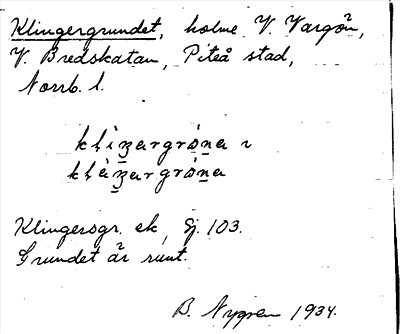 Klingergrundet, holme V. Vargön,
V. Bredskatan, Piteå stad,
Norrb. l.
Klingersgr. ek, Sj. 103.
Grundet är runt.
B. Nygren 1934.